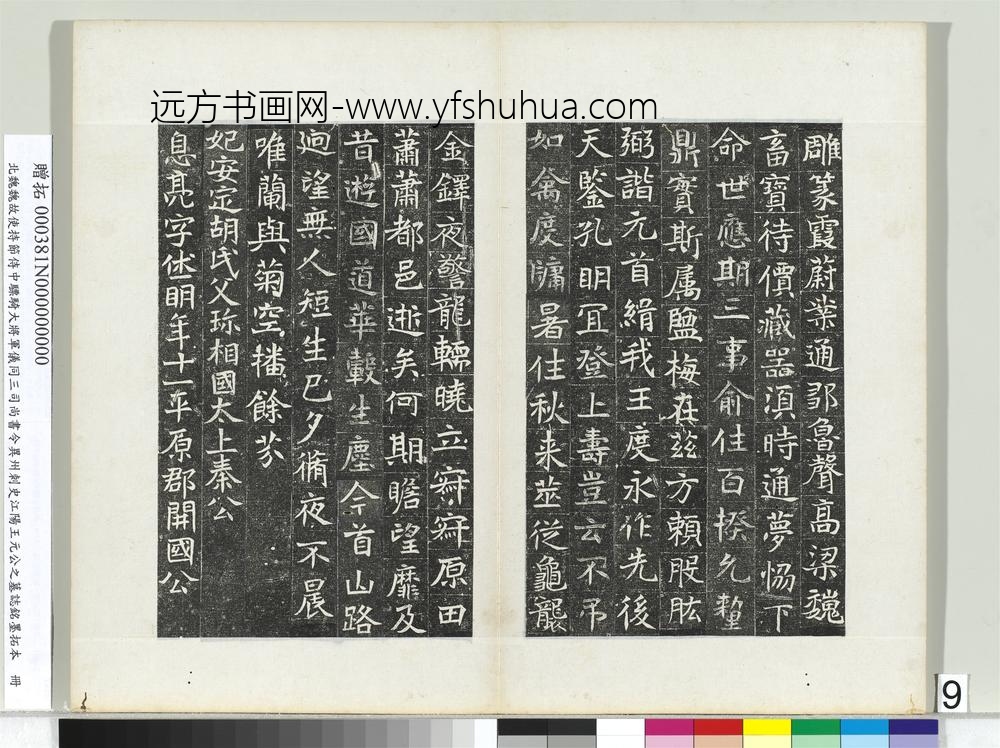 远方书画网-www.yfshuhua.com
雕篆霞蔚業通鄒魯聲高梁魏
畜寶待價藏器湏時通夢惕下
命世應期三事俞往百揆允釐
鼎實斯属鹽梅在兹方賴股肱
弼諧元首緝我王度永作先後
天鑒孔明冝登上壽豈云不吊
如禽度牖暑住秋来並従龜襲
金鐸夜警龍轜曉立寂寂原田
蕭蕭都邑逝矣何期瞻望靡及
昔遊國道華轂生塵今首山路
迥望無人短生已夕脩夜不晨
唯蘭與菊空播餘芬
妃安定胡氏父珎相國太上秦公
息亮字休明年十一平原郡開國公
贈拓 000381N000000000
北魏魏故使持節侍中驃騎大將軍儀同三司尚書令冀州刺史江陽王元公之墓誌銘墨拓本 冊
9